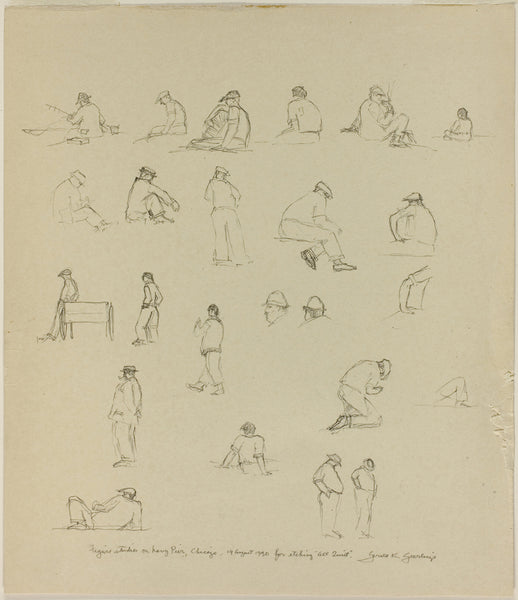 Figure studies on Navy Pier, Chicago, 19 August 1930 for etching "All Quiet" Gerald K. Geerlings